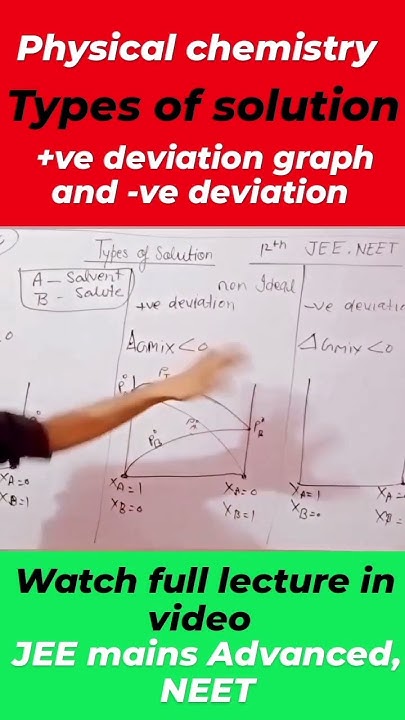 Physical chemistry
Types of solution
+ve deviation graph
and -ve deviation
Types of Solution 12th JEE.NEET
A - Salvent
B - Salute
non Ideal
+ve deviation
-ve deviatio
ΔGmix<0
ΔGmix<0
P°B
XA=1
XB=0
XA=0
XB=1
XA=1
XB=0
XA=0
XB=1
Watch full lecture in
video
JEE mains Advanced,
NEET